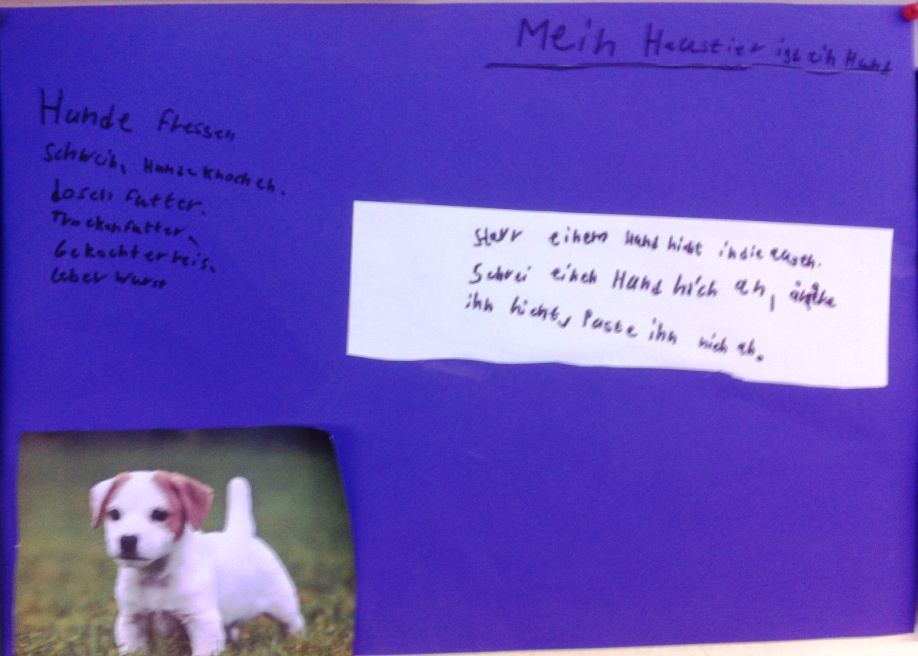 Mein Haustier ist ein Hund
Hunde fressen
Schwein, Hundeknochen.
dosen futter.
Trockenfutter,
Gekochter reis.
leber wurst
Starr einem Hund nicht in die augen.
Schrei einen Hund nich an, ärgere
ihn nicht, Passe ihn nich an.